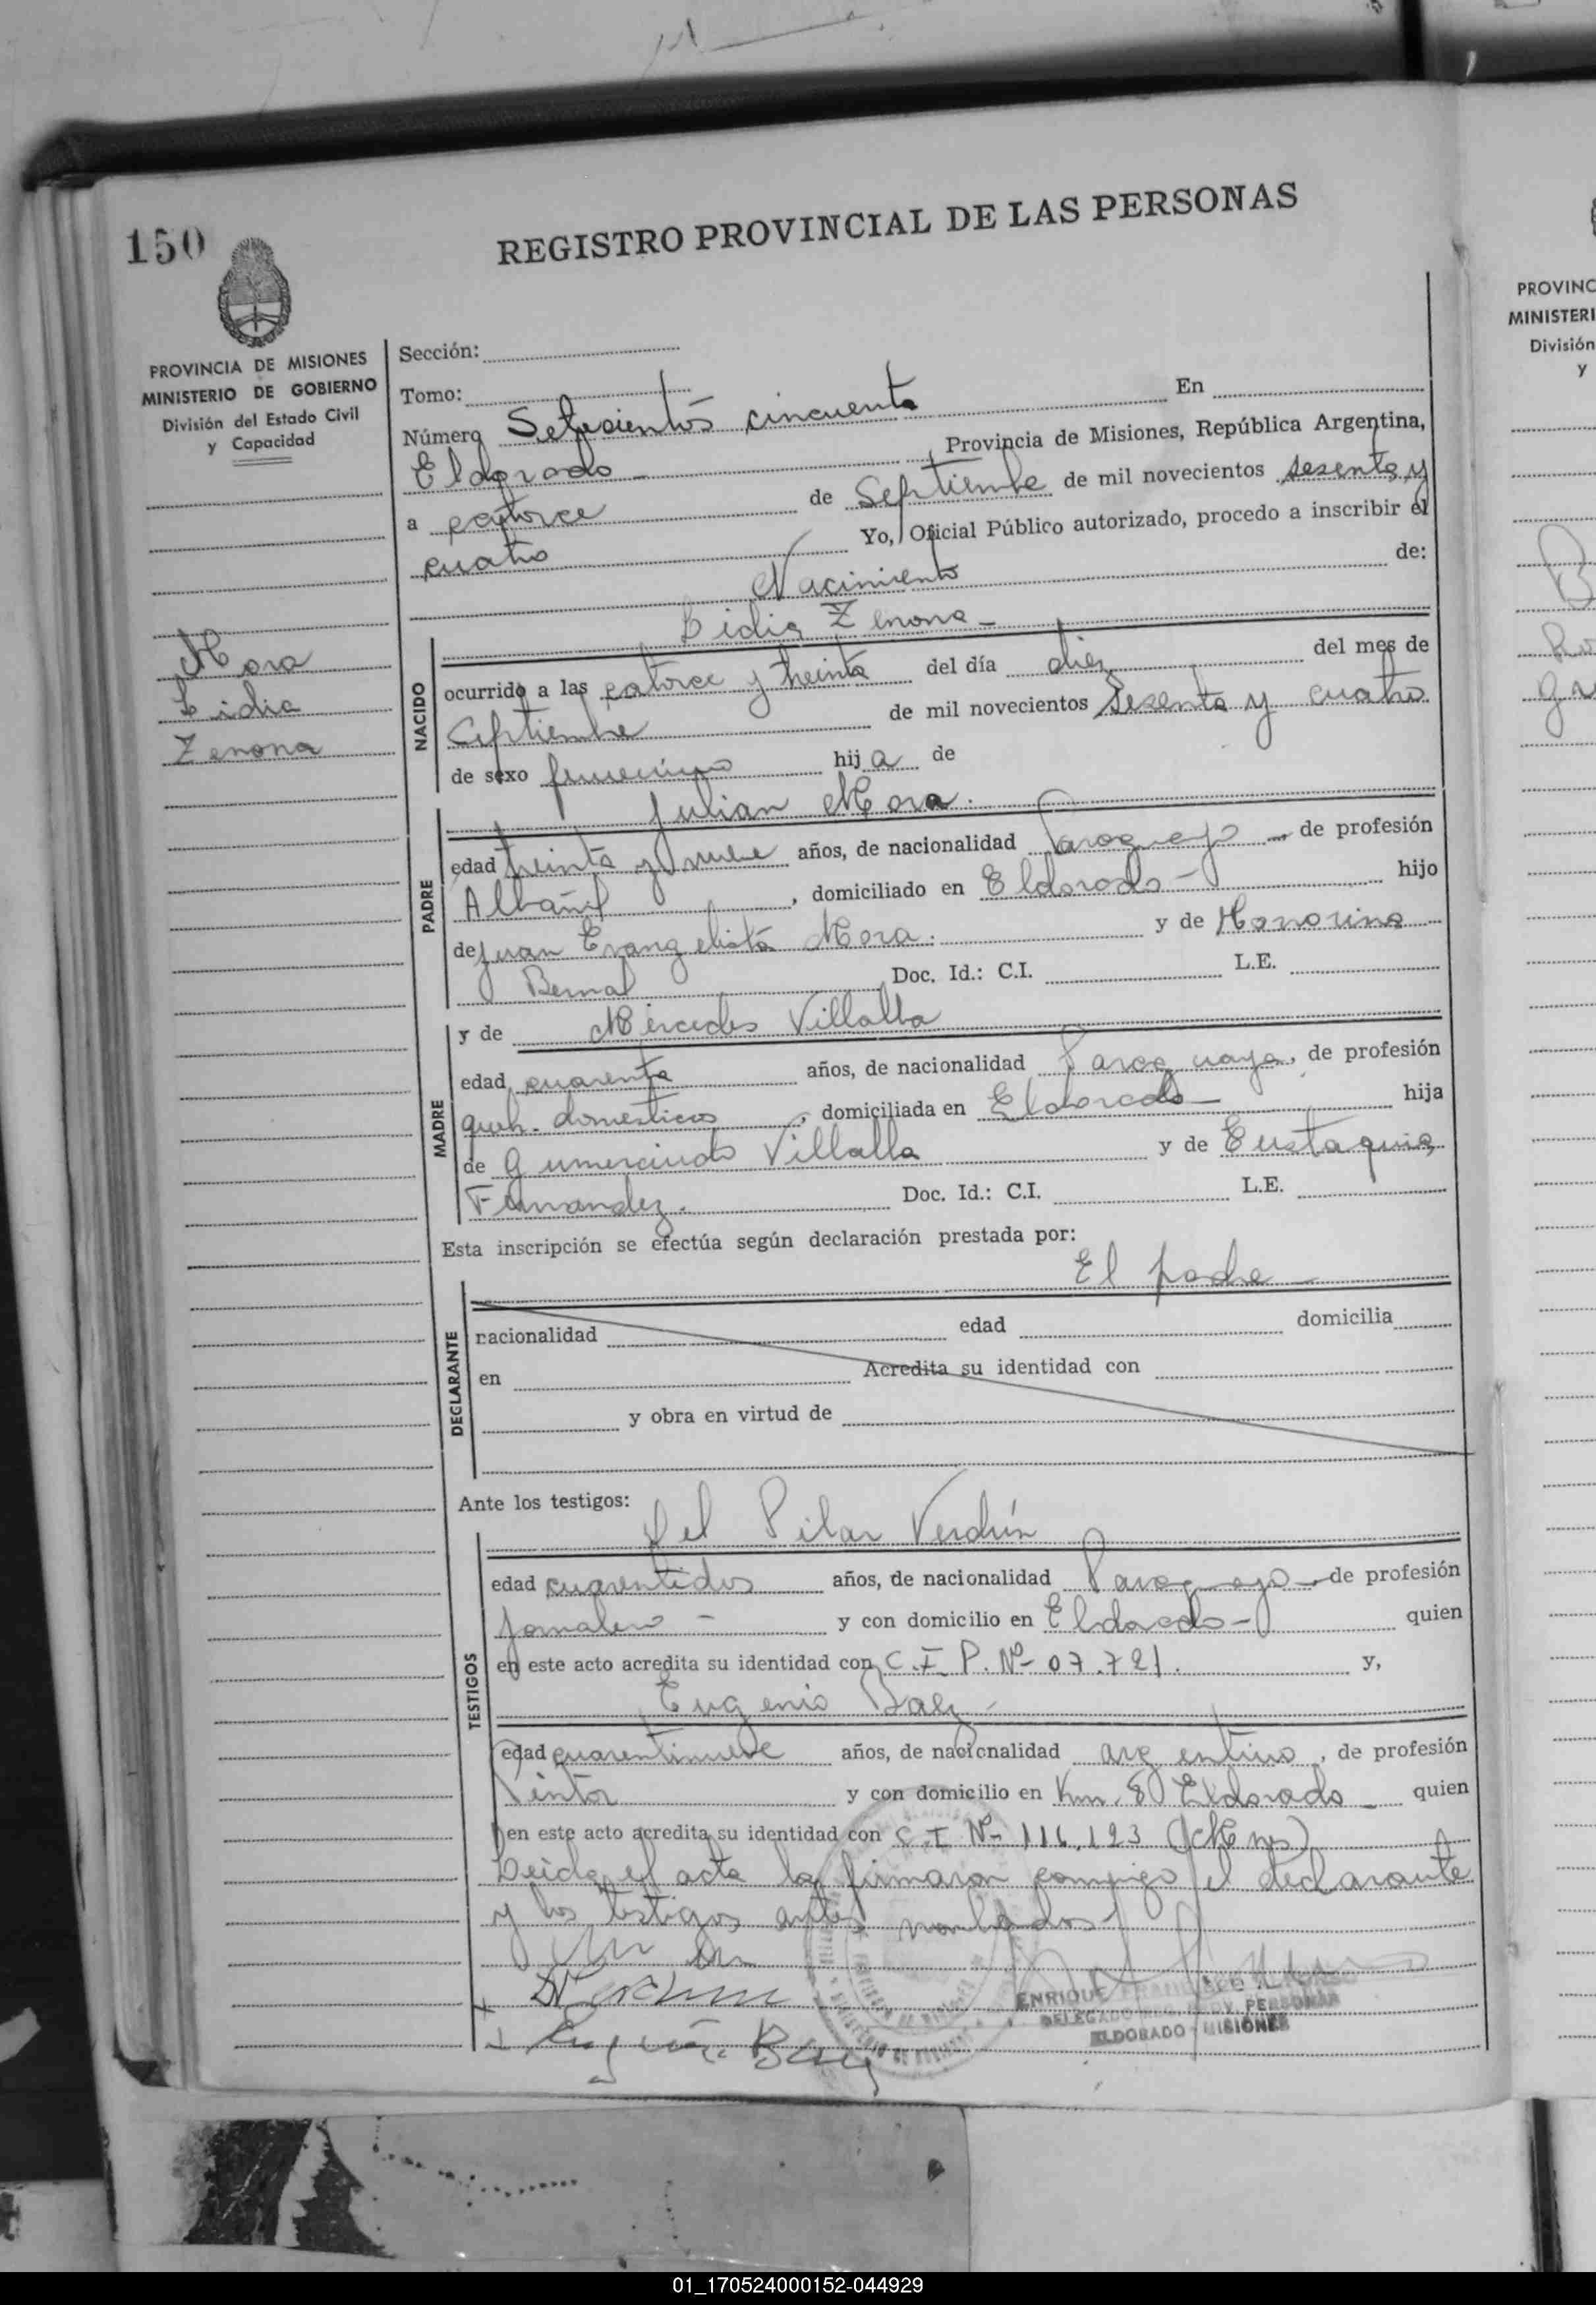 150
REGISTRO PROVINCIAL DE LAS PERSONAS
PROVINCIA DE MISIONES
MINISTERIO DE GOBIERNO
División del Estado Civil
y Capacidad
Mora
Lidia
Zenona
Sección:
Tomo: En
Número Setesientos cincuenta
Eldorado - , Provincia de Misiones, República Argentina,
a catorce de Septiembre de mil novecientos sesenta y
cuatro Yo, Oficial Público autorizado, procedo a inscribir el
Nacimiento de:
Lidia Zenona -
NACIDO
ocurrido a las catorce y treinta del día diez del mes de
Septiembre de mil novecientos Sesenta y cuatro
de sexo femenino hija de
Julian Mora.
PADRE
edad treinta y nueve años, de nacionalidad Paraguayo - de profesión
Albañil, domiciliado en Eldorado - hijo
de Juan Evangelista Mora. y de Honorina
Bernal Doc. Id.: C.I. L.E.
y de Mercedes Villalba
MADRE
edad cuarenta años, de nacionalidad Paraguaya, de profesión
queh. domesticos, domiciliada en Eldorado - hija
de Gumercindo Villalba y de Eustaquia
Fernandez. Doc. Id.: C.I. L.E.
Esta inscripción se efectúa según declaración prestada por:
El padre -
DECLARANTE
nacionalidad edad domicilia
en Acredita su identidad con
y obra en virtud de
Ante los testigos:
Del Pilar Verdún
TESTIGOS
edad cuarentidos años, de nacionalidad Paraguayo - de profesión
Jornalero - y con domicilio en Eldorado - quien
en este acto acredita su identidad con C.I. P. Nº- 07.721. y,
Eugenio Baez -
edad cuarentinueve años, de nacionalidad argentino, de profesión
Pintor y con domicilio en Km. 8 Eldorado - quien
en este acto acredita su identidad con C.I. Nº- 116.123 (Mnes)
Leida el acta la firmaron conmigo el declarante
y los testigos antes nombrados
Eugenio Baez
ENRIQUE FRANCISCO
DELEGADO REG. PROV. PERSONAS
ELDORADO - MISIONES
PROVINC
MINISTERI
División
y
01_170524000152-044929